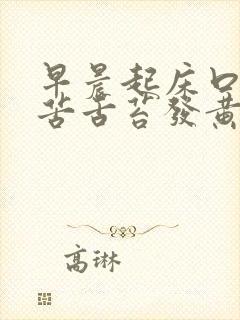 早晨起床口
苦舌苔發黃
高琳